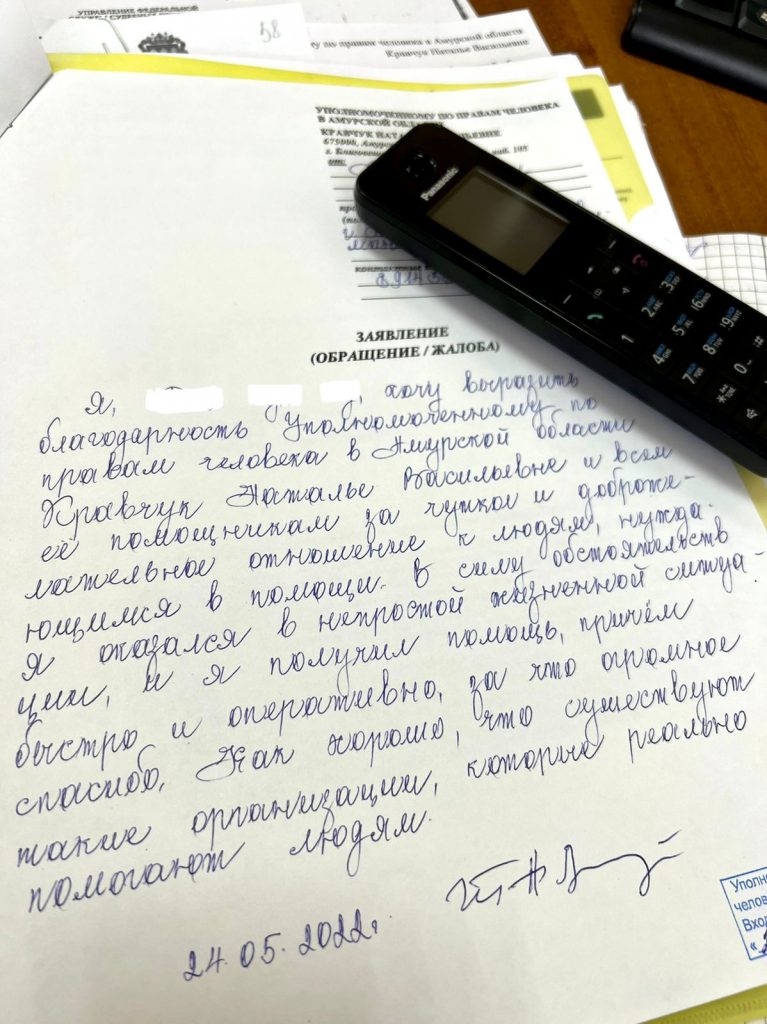 УПРАВЛЕНИЕ ФЕДЕРАЛЬНОЙ
58
по правам человека в Амурской области
Кравчук Наталье Васильевне
УПОЛНОМОЧЕННОМУ ПО ПРАВАМ ЧЕЛОВЕКА
В АМУРСКОЙ ОБЛАСТИ
КРАВЧУК
675000,
от:
контактные
8914
Panasonic
ЗАЯВЛЕНИЕ
(ОБРАЩЕНИЕ / ЖАЛОБА)
Я, , хочу выразить
благодарность Уполномоченному по
правам человека в Амурской области
Кравчук Наталье Васильевне и всем
её помощникам за чуткое и доброже-
лательное отношение к людям, нужда-
ющимся в помощи. В силу обстоятельств
я оказался в непростой жизненной ситуа-
ции, и я получил помощь, причём
быстро и оперативно, за что огромное
спасибо. Как хорошо, что существуют
такие организации, которые реально
помогают людям.
24.05.2022г.
Уполно
челов
Вход